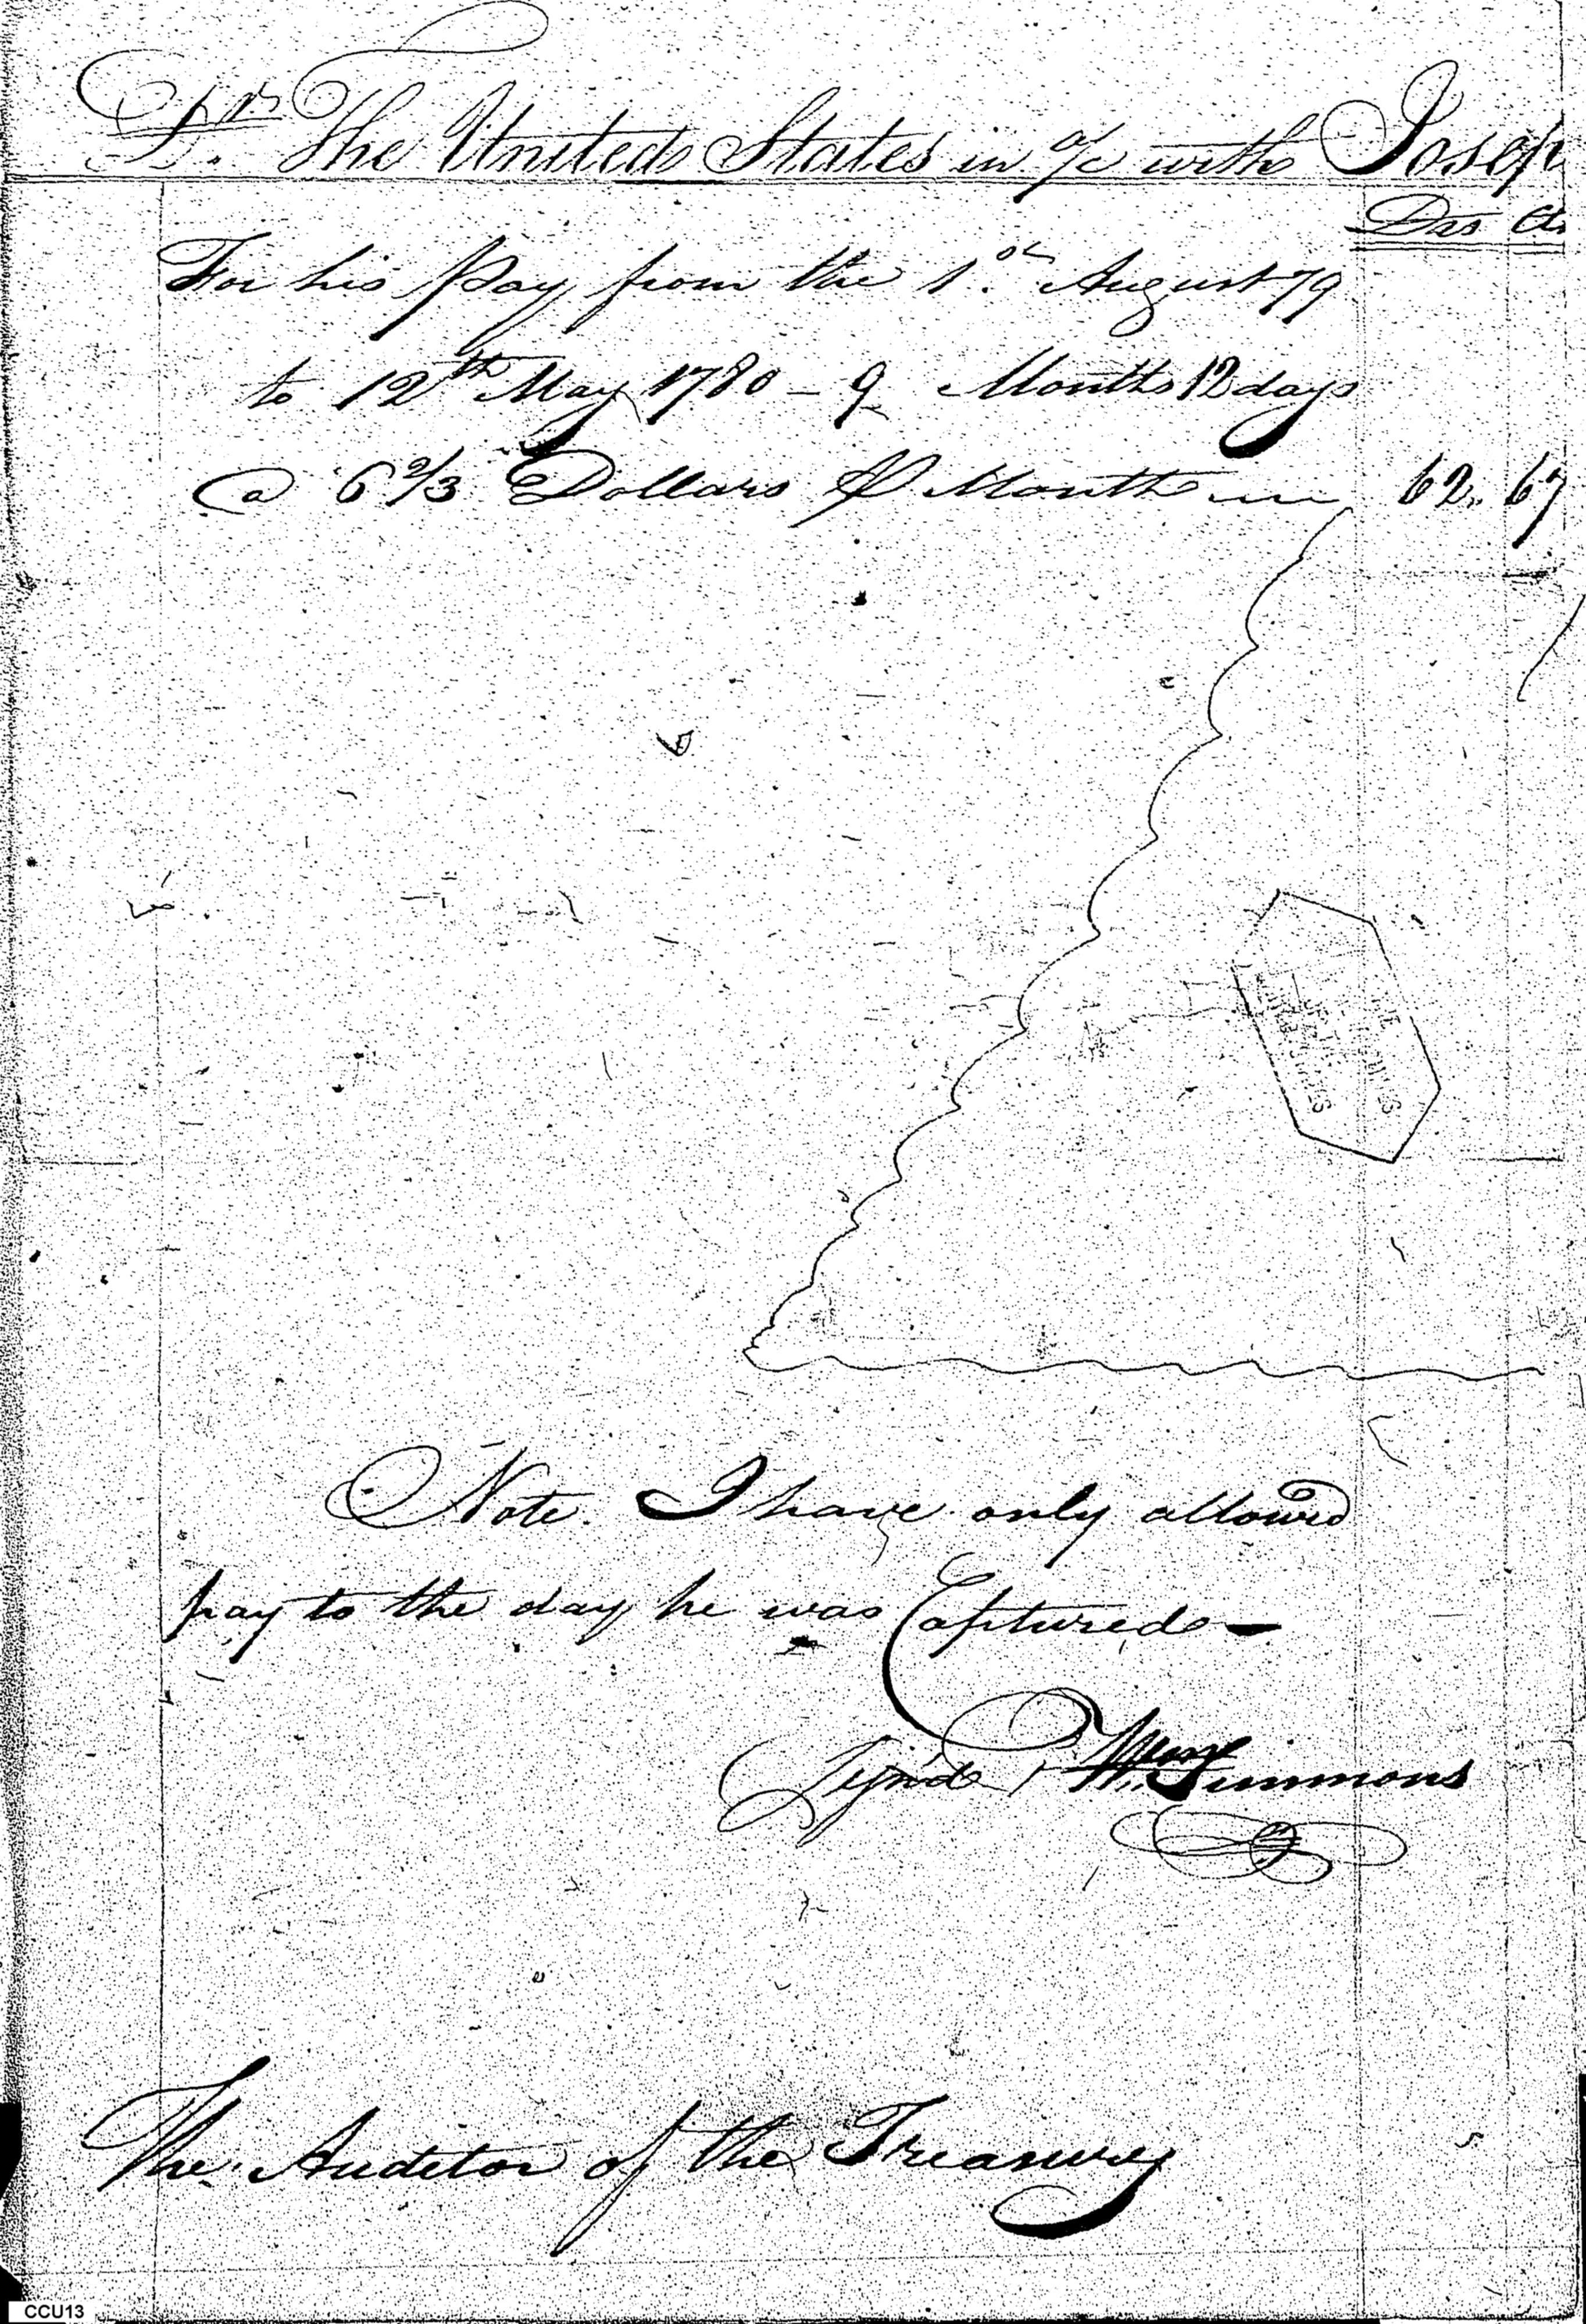 Drs
Dr. The United States in a/c with Josep
Drs Cts
For his Pay from the 1st August 79
to 12th May 1780 - 9 Months 12 days
@ 6 2/3 Dollars P Month 62.. 67
Note. I have only allowed
pay to the day he was Captured
Sign'd Wm Simmons
The Auditor of the Treasury
CCU13